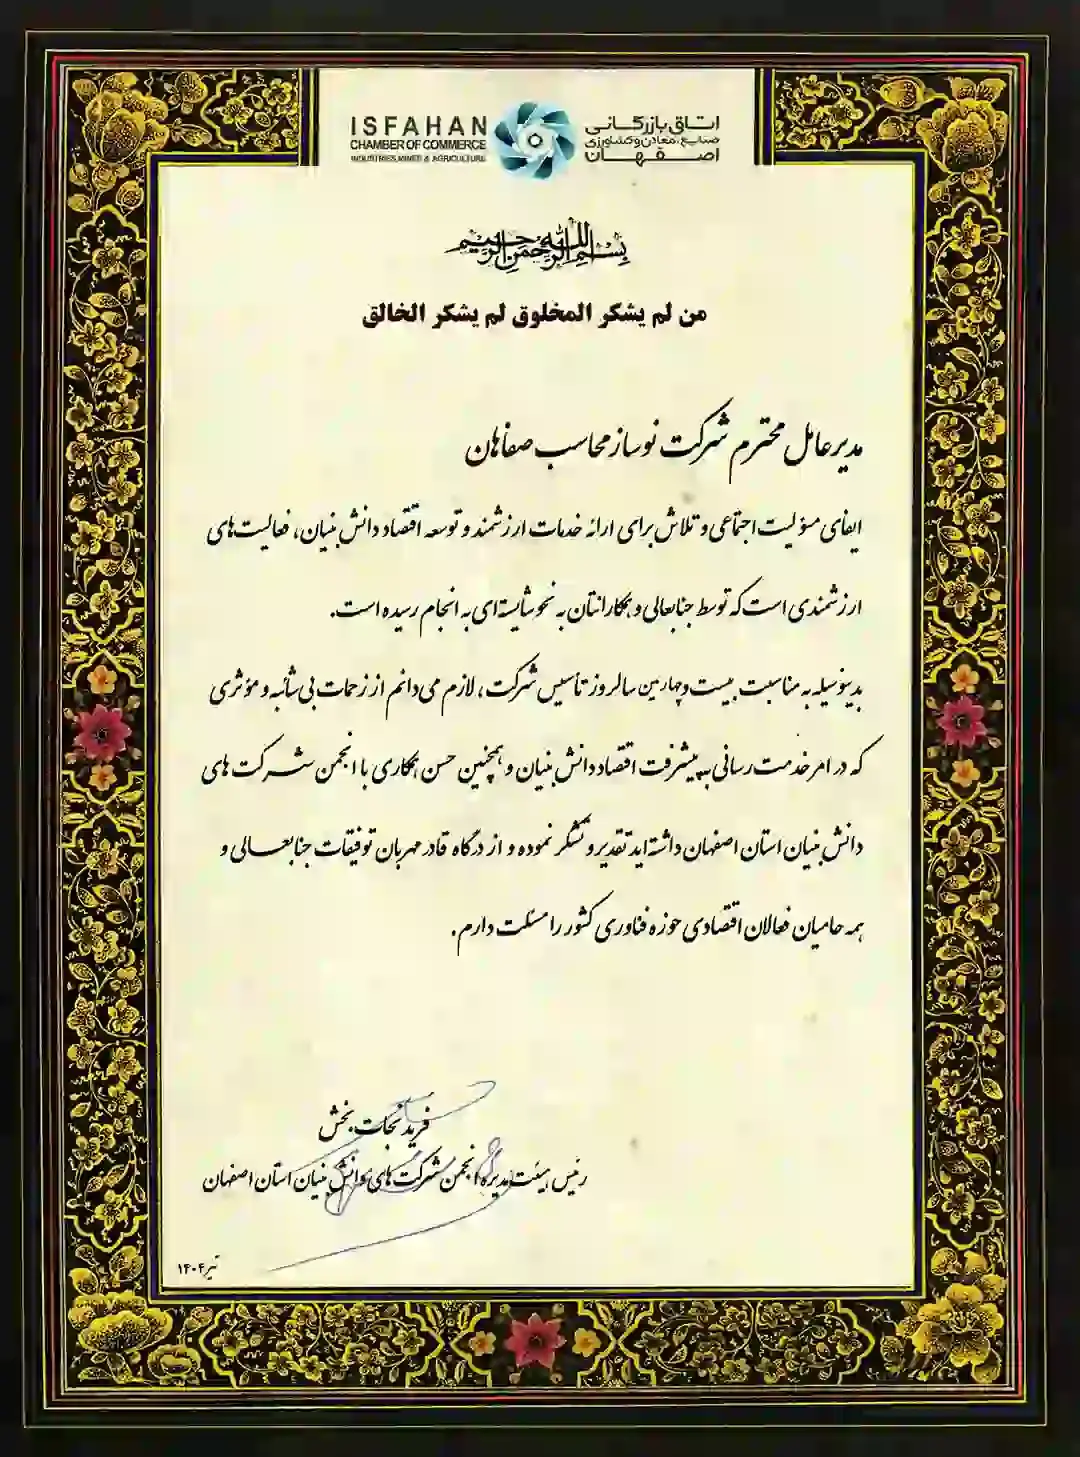 ISFAHAN
CHAMBER OF COMMERCE
INDUSTRIES, MINES & AGRICULTURE
اتاق بازرگانی
صنایع، معادن و کشاورزی
اصفهان
بسم الله الرحمن الرحیم
من لم یشکر المخلوق لم یشکر الخالق
مدیرعامل محترم شرکت نوساز محاسب صفاهان
ایفای مسؤلیت اجتماعی و تلاش برای ارائه خدمات ارزشمند و توسعه اقتصاد دانش بنیان، فعالیت‌های
ارزشمندی است که توسط جنابعالی و همکارانتان به نحو شایسته‌ای به انجام رسیده است.
بدینوسیله به مناسبت بیست و چهارمین سالروز تأسیس شرکت، لازم می‌دانم از زحمات بی شائبه و مؤثری
که در امر خدمت رسانی به پیشرفت اقتصاد دانش بنیان و همچنین حسن همکاری با انجمن شرکت های
دانش بنیان استان اصفهان داشته‌اید تقدیر و تشکر نموده و از درگاه قادر مهربان توفیقات جنابعالی و
همه حامیان فعالان اقتصادی حوزه فناوری کشور را مسئلت دارم.
فرید نجات بخش
رئیس هیئت مدیره انجمن شرکت های دانش بنیان استان اصفهان
تیر ۱۴۰۴